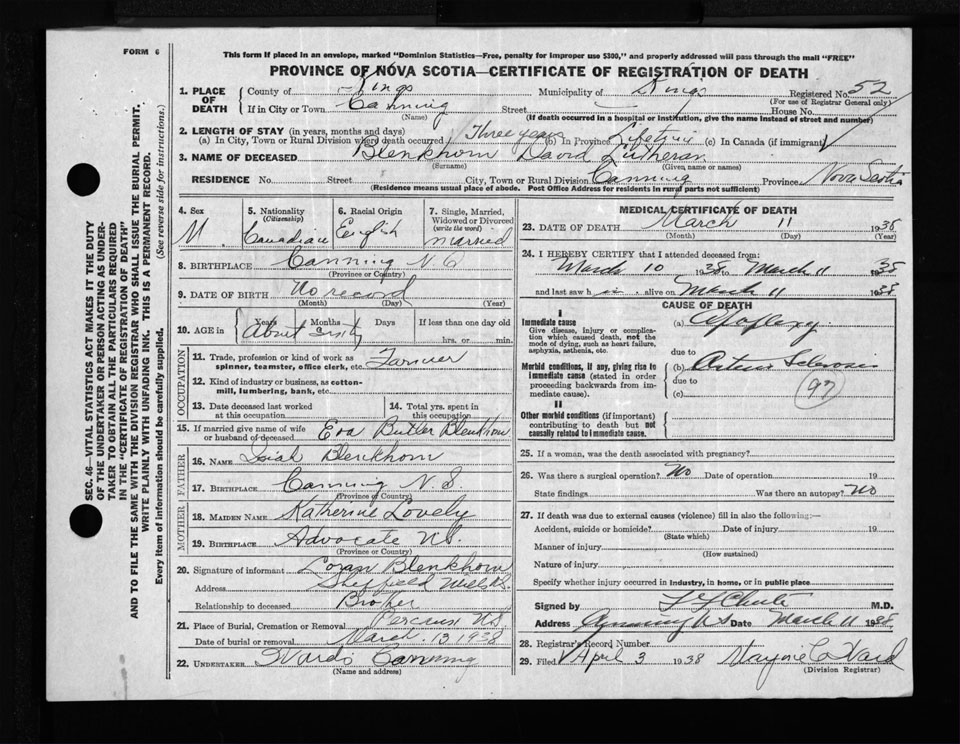 FORM 6
This form if placed in an envelope, marked "Dominion Statistics—Free, penalty for improper use $300," and properly addressed will pass through the mail "FREE"
PROVINCE OF NOVA SCOTIA—CERTIFICATE OF REGISTRATION OF DEATH
1. PLACE OF DEATH
County of Kings Municipality of Kings Registered No. 52
(For use of Registrar General only)
If in City or Town Canning Street House No.
(Name) (If death occurred in a hospital or institution, give the name instead of street and number)
2. LENGTH OF STAY (in years, months and days)
(a) In City, Town or Rural Division where death occurred Three years (b) In Province Lifetime (c) In Canada (if immigrant)
3. NAME OF DECEASED Blenkhorn David Lutheran
(Surname) (Given name or names)
RESIDENCE No. Street City, Town or Rural Division Canning Province Nova Scotia
(Residence means usual place of abode. Post Office Address for residents in rural parts not sufficient)
4. Sex 5. Nationality (Citizenship) 6. Racial Origin 7. Single, Married, Widowed or Divorced (write the word)
M. Canadian English married
8. BIRTHPLACE Canning N.S.
(Province or Country)
9. DATE OF BIRTH No record
(Month) (Day) (Year)
10. AGE in Years Months Days If less than one day
About sixty hrs. or min.
OCCUPATION
11. Trade, profession or kind of work as spinner, teamster, office clerk, etc. Farmer
12. Kind of industry or business, as cotton-mill, lumbering, bank, etc.
13. Date deceased last worked at this occupation
14. Total yrs. spent in this occupation
15. If married give name of wife or husband of deceased Eva Butler Blenkhorn
FATHER
16. NAME Isiah Blenkhorn
17. BIRTHPLACE Canning N.S.
(Province or Country)
MOTHER
18. MAIDEN NAME Katherine Lovely
19. BIRTHPLACE Advocate N.S.
(Province or Country)
20. Signature of informant Loran Blenkhorn
Address Sheffield Mills N.S.
Relationship to deceased Brother
21. Place of Burial, Cremation or Removal Pereaux N.S.
Date of burial or removal March 13 1938
22. UNDERTAKER Wards Canning
(Name and address)
MEDICAL CERTIFICATE OF DEATH
23. DATE OF DEATH March 11 1938
(Month) (Day) (Year)
24. I HEREBY CERTIFY that I attended deceased from:
March 10 1938 to March 11 1938
and last saw him alive on March 11 1938
CAUSE OF DEATH
I
Immediate cause
Give disease, injury or complication which caused death, not the mode of dying, such as heart failure, asphyxia, asthenia, etc.
(a) Apoplexy
due to
Morbid conditions, if any, giving rise to immediate cause (stated in order proceeding backwards from immediate cause).
(b) Arterio Sclerosis
due to
(c) (97)
II
Other morbid conditions (if important) contributing to death but not causally related to immediate cause.
25. If a woman, was the death associated with pregnancy?
26. Was there a surgical operation? No Date of operation 19
State findings Was there an autopsy? No
27. If death was due to external causes (violence) fill in also the following:—
Accident, suicide or homicide? Date of injury 19
(State which)
Manner of injury
(How sustained)
Nature of injury
Specify whether injury occurred in industry, in home, or in public place
Signed by M.D.
Address Canning N.S. Date March 11 1938
28. Registrar's Record Number
29. Filed April 3 1938 Marjorie C. Ward
(Division Registrar)
SEC. 46—VITAL STATISTICS ACT MAKES IT THE DUTY
OF THE UNDERTAKER OR PERSON ACTING AS UNDER-
TAKER TO OBTAIN ALL THE PARTICULARS REQUIRED
IN THE "CERTIFICATE OF REGISTRATION OF DEATH"
AND TO FILE THE SAME WITH THE DIVISION REGISTRAR WHO SHALL ISSUE THE BURIAL PERMIT.
WRITE PLAINLY WITH UNFADING INK. THIS IS A PERMANENT RECORD.
Every item of information should be carefully supplied. (See reverse side for instructions.)